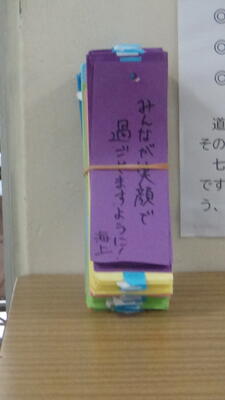 みんなが笑顔で
過ごせますように!
海上
道
その
七
です
う、